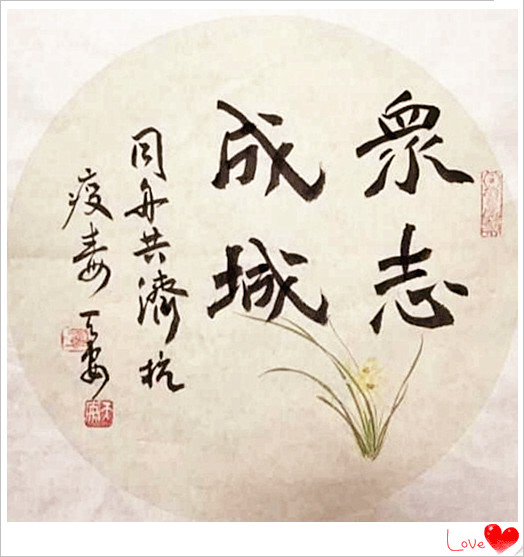 眾志
成城
同舟共濟抗
疫毒
Love